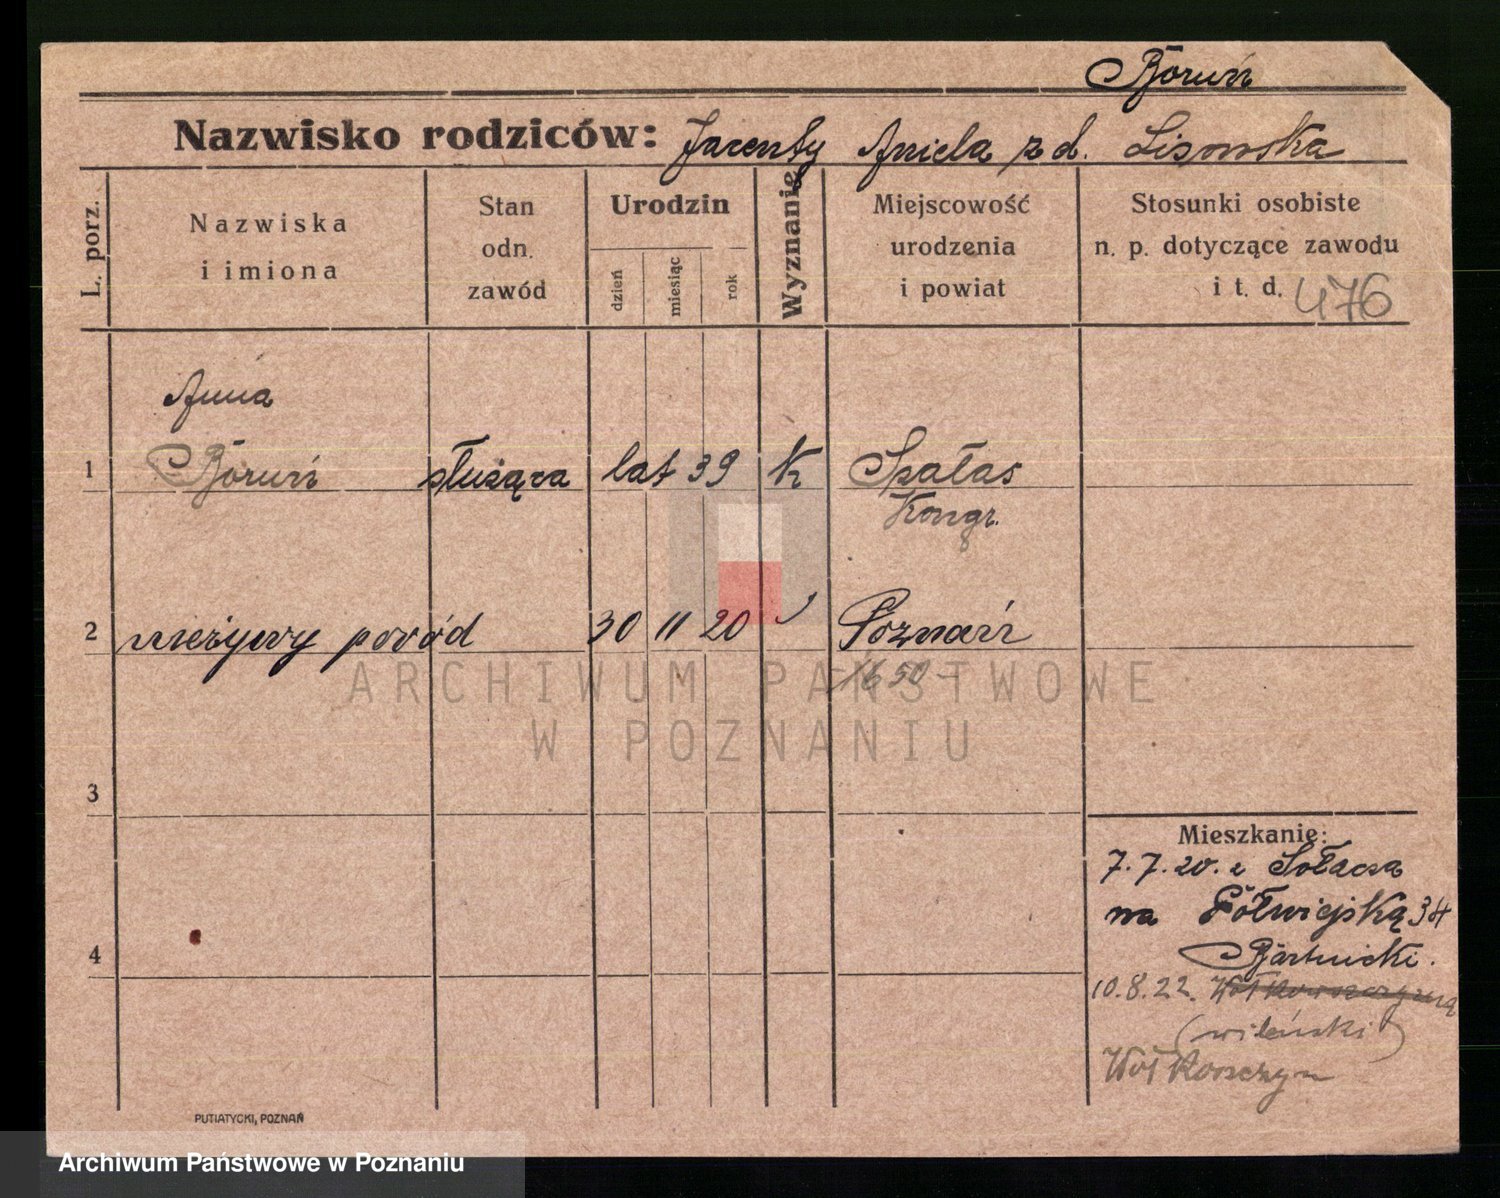 Boruń
Nazwisko rodziców: Jacenty Aniela z d. Lisowska
L. porz.
Nazwiska
i imiona
Stan
odn.
zawód
Urodzin
dzień
miesiąc
rok
Wyznanie
Miejscowość
urodzenia
i powiat
Stosunki osobiste
n. p. dotyczące zawodu
i t. d. 476
Anna
1 Boruń służąca lat 39 K Skałas
Kongr.
2 nieżywy poród 30 11 20 Poznań
1650
ARCHIWUM PAŃSTWOWE
W POZNANIU
3
Mieszkanie:
7.7.20. z Sołacza
na Półwiejską 34
Bartnicki.
4
10.8.22.
(wileński)
PUTIATYCKI, POZNAŃ
Archiwum Państwowe w Poznaniu